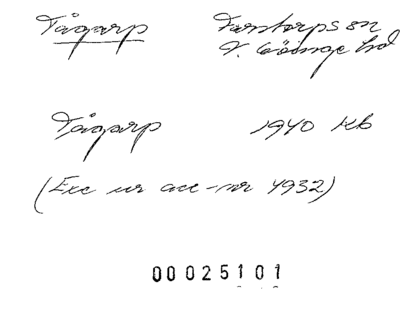 Tågarp Farstorps sn
V. Göinge hd
Tågarp 1940 Kb
(Exc ur acc-nr 4932)
00025101